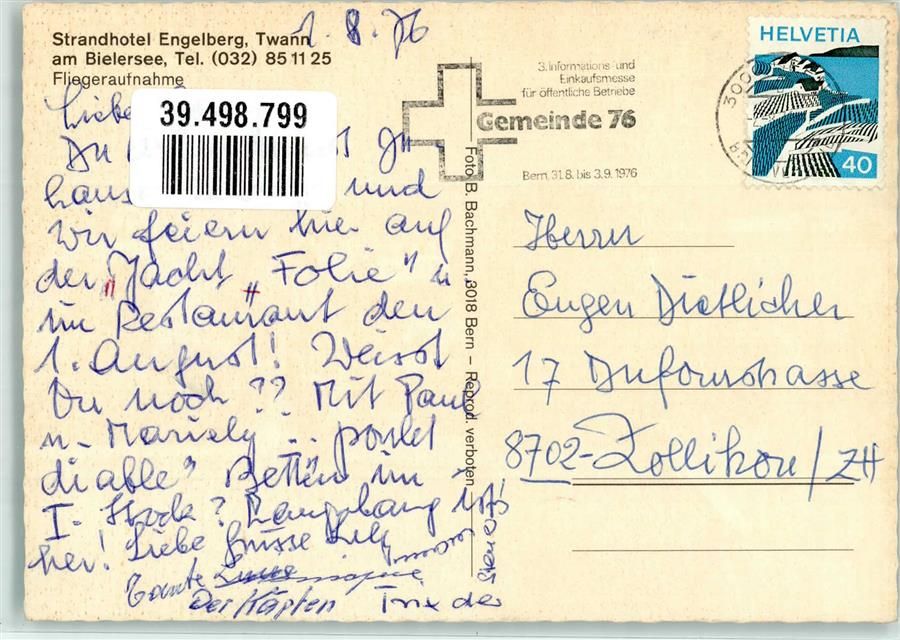 Strandhotel Engelberg, Twann
am Bielersee, Tel. (032) 85 11 25
Fliegeraufnahme
1. 8. 76
39.498.799
Liebe
Du zu
Hause und
wir feiern hier auf
der "Yacht "Folie" u
im Restaurant den
1. August! Weisst
Du noch?? Mit Paul
u. Mariely ..
diable" Betten im
I. Stock? Langelang ist's
her! Liebe Grüsse Lily
Tante
Der Käpten Trix der
Foto B. Bachmann, 3018 Bern – Reprod. verboten
3. Informations- und
Einkaufsmesse
für öffentliche Betriebe
Gemeinde 76
Bern, 31.8. bis 3.9.1976
HELVETIA
40
Herrn
Eugen Dietlicher
17 Dufourstrasse
8702-Zollikon/ZH